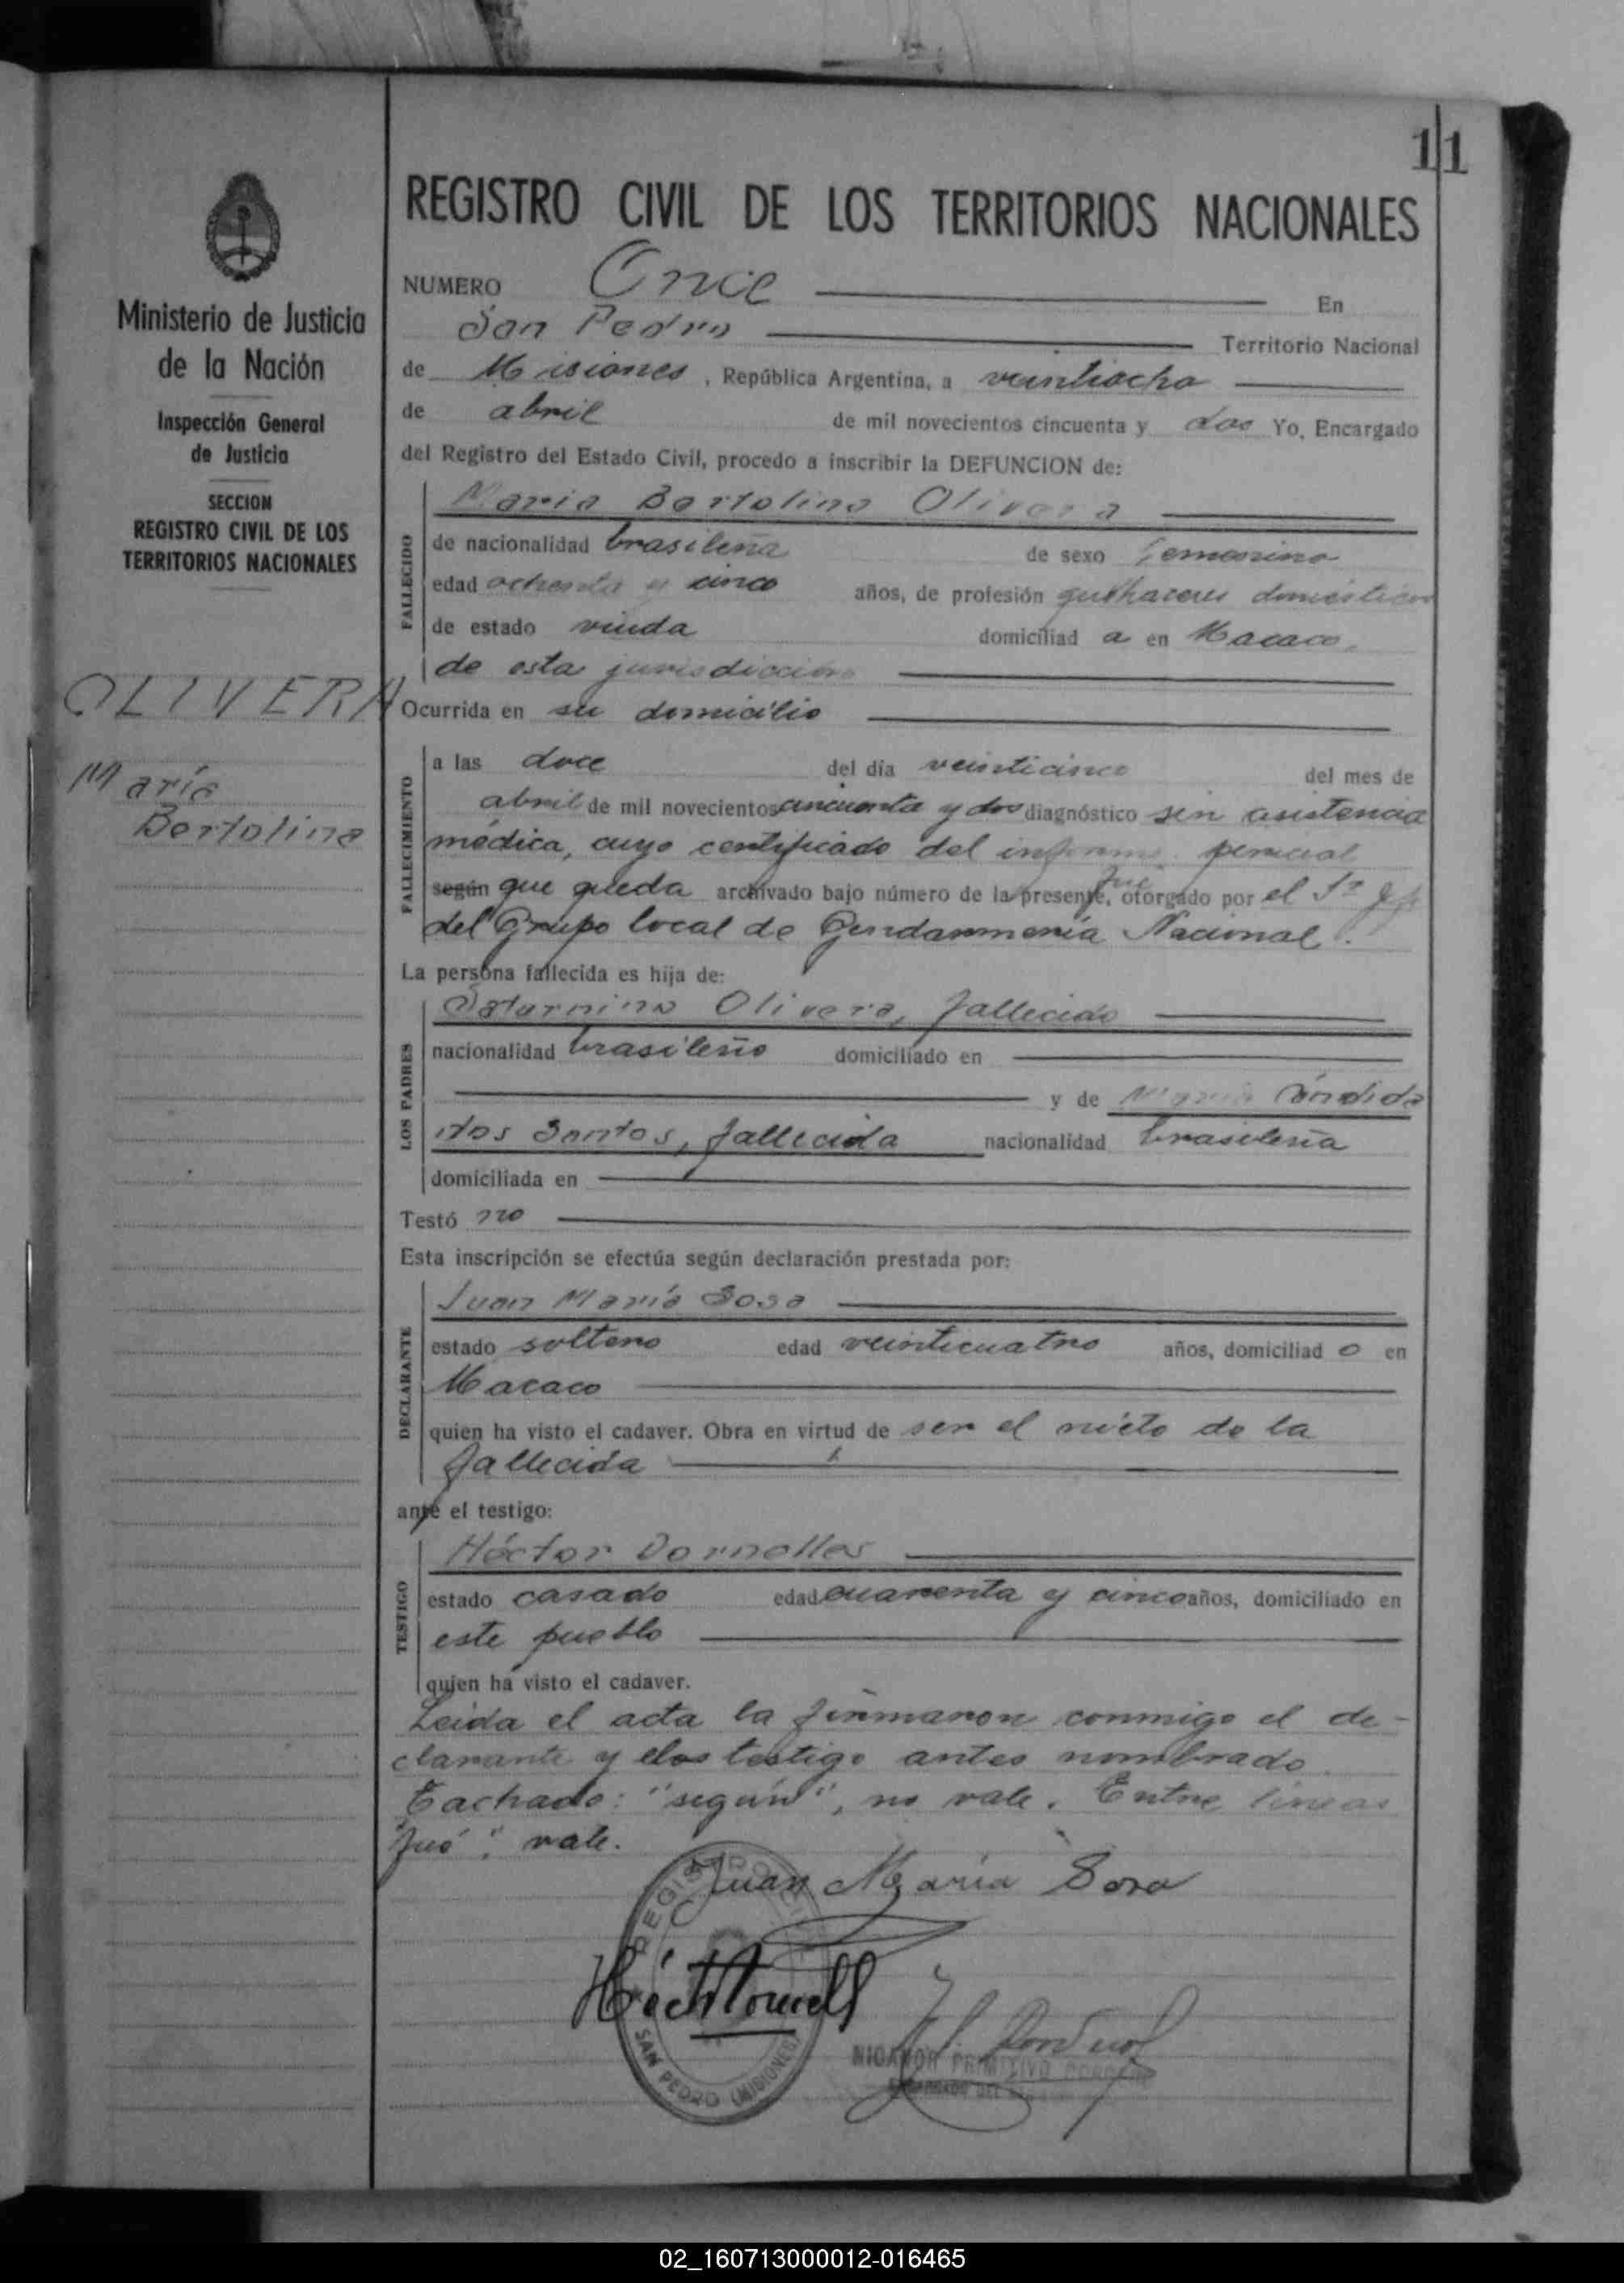 11
REGISTRO CIVIL DE LOS TERRITORIOS NACIONALES
Ministerio de Justicia
de la Nación
Inspección General
de Justicia
SECCION
REGISTRO CIVIL DE LOS
TERRITORIOS NACIONALES
OLIVERA
María
Bertolina
NUMERO Once En
San Pedro Territorio Nacional
de Misiones, República Argentina, a veintiocho
de abril de mil novecientos cincuenta y dos Yo, Encargado
del Registro del Estado Civil, procedo a inscribir la DEFUNCION de:
FALLECIDO
Maria Bertolina Olivera
de nacionalidad brasileña de sexo femenino
edad ochenta y cinco años, de profesión quehaceres domésticos
de estado viuda domiciliad a en Macaco,
de esta jurisdicción
Ocurrida en su domicilio
FALLECIMIENTO
a las doce del día veinticinco del mes de
abril de mil novecientos cincuenta y dos diagnóstico sin asistencia
médica, cuyo certificado del informe pericial
según que queda archivado bajo número de la presente, fué otorgado por el Sr Jefe
del Grupo local de Gendarmería Nacional.
La persona fallecida es hija de:
LOS PADRES
Saturnino Olivera, fallecido
nacionalidad brasileño domiciliado en
y de María Cándida
dos Santos, fallecida nacionalidad brasileña
domiciliada en
Testó no
Esta inscripción se efectúa según declaración prestada por:
DECLARANTE
Juan María Sosa
estado soltero edad veinticuatro años, domiciliad o en
Macaco
quien ha visto el cadaver. Obra en virtud de ser el nieto de la
fallecida
ante el testigo:
TESTIGO
Héctor Dornelles
estado casado edad cuarenta y cinco años, domiciliado en
este pueblo
quien ha visto el cadaver.
Leida el acta la firmaron conmigo el de-
clarante y el testigo antes nombrado.
Tachado: "según", no vale. Entre lineas
fué", vale.
Juan María Sosa
REGISTRO CIVIL
SAN PEDRO (MISIONES)
NICANOR PRIMITIVO
ENCARGADO DEL
02_160713000012-016465